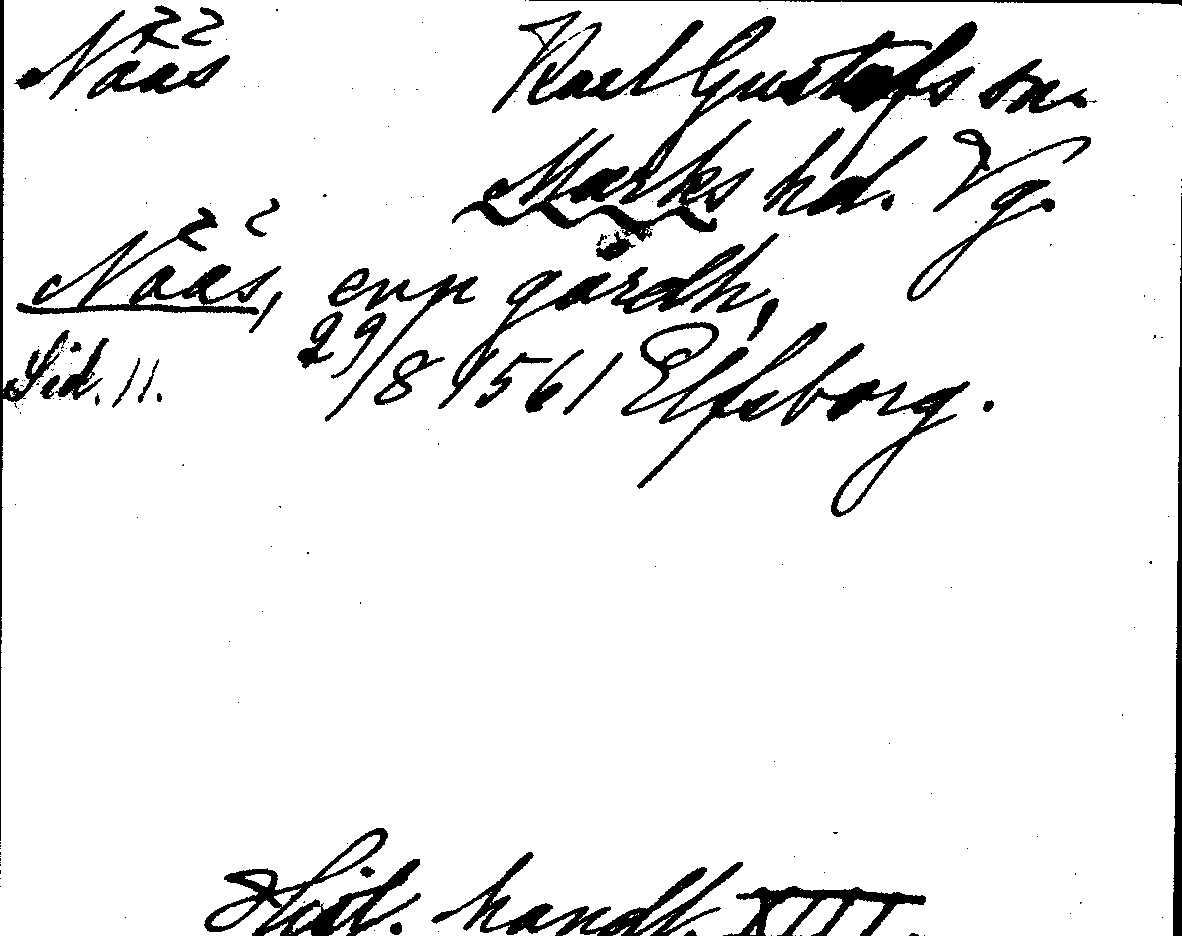 Näääs Karl Gustafs sn.
Marks hd. Vg.
Näääs, enn gårdh,
Sid. 11. 29/8 1561 Elfsborg.
Hist. handl. XIII.